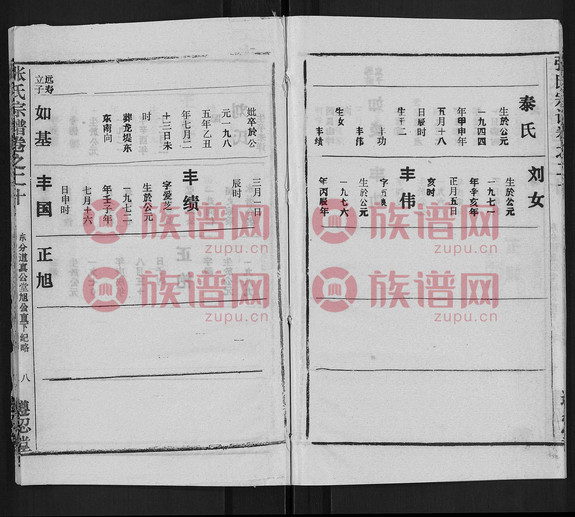 張氏宗譜卷之二十
泰氏
生於公元
一九四四
年甲申年
五月十八
日辰时
生子二
丰功
丰伟
生女
丰绩
刘女
生於公元
一九七一
年辛亥年
正月五日
亥时
丰伟
生於公元
一九七六
年丙辰年
妣卒於公
元一九八
五年乙丑
年七月二
十三日未
时
葬龙堤东
东南向
如基
远寿
立子
三月一日
辰时
丰绩
字爱芝
生於公元
一九七二
年壬子年
七月十六
日申时
丰国
正旭
张氏宗譜卷之二十
东分道真公堂旭公直下纪略
八
族谱网
zupu.cn
族谱网
zupu.cn
族谱网
zupu.cn
族谱网
zupu.cn